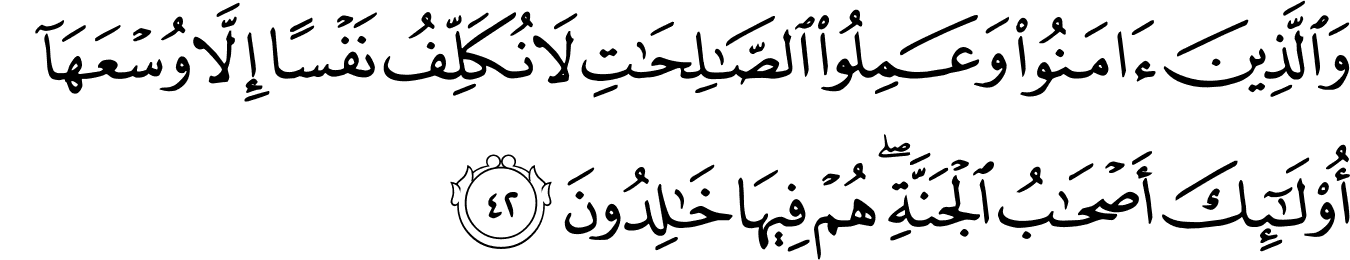 وَٱلَّذِينَ ءَامَنُوا۟ وَعَمِلُوا۟ ٱلصَّـٰلِحَـٰتِ لَا نُكَلِّفُ نَفْسًا إِلَّا وُسْعَهَآ
أُو۟لَـٰٓئِكَ أَصْحَـٰبُ ٱلْجَنَّةِ ۖ هُمْ فِيهَا خَـٰلِدُونَ ٤٢